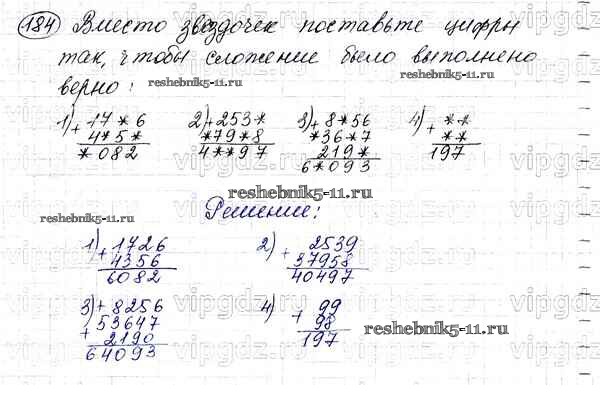 184 Вместо звездочек поставьте цифры
так, чтобы сложение было выполнено
верно:
reshebnik5-11.ru
1) + 17*6 2) + 253* 3) + 8*56 4) + **
4*5* *79*8 *36*7 **
*082 4**97 219* 197
6*093
reshebnik5-11.ru
reshebnik5-11.ru
Решение:
1) + 1726 2) + 2539
4356 37958
6082 40497
3) + 8256 4) + 99
+ 53647 98
2190 197
64093
reshebnik5-11.ru
vipgdz.ru